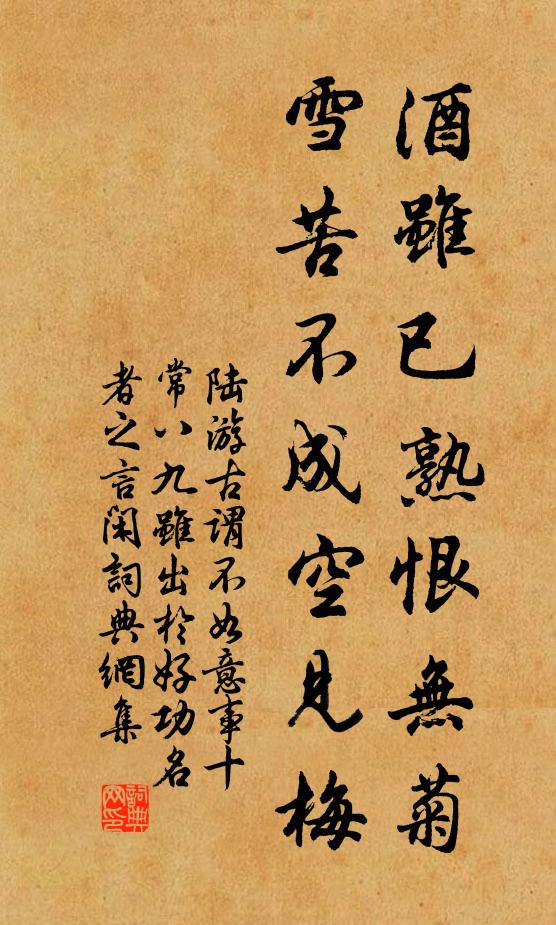 酒雖已熟恨無菊
雪苦不成空見梅
陸游古謂不如意事十
常八九雖出於好功名
者之言閑詞典網集
詞典網印